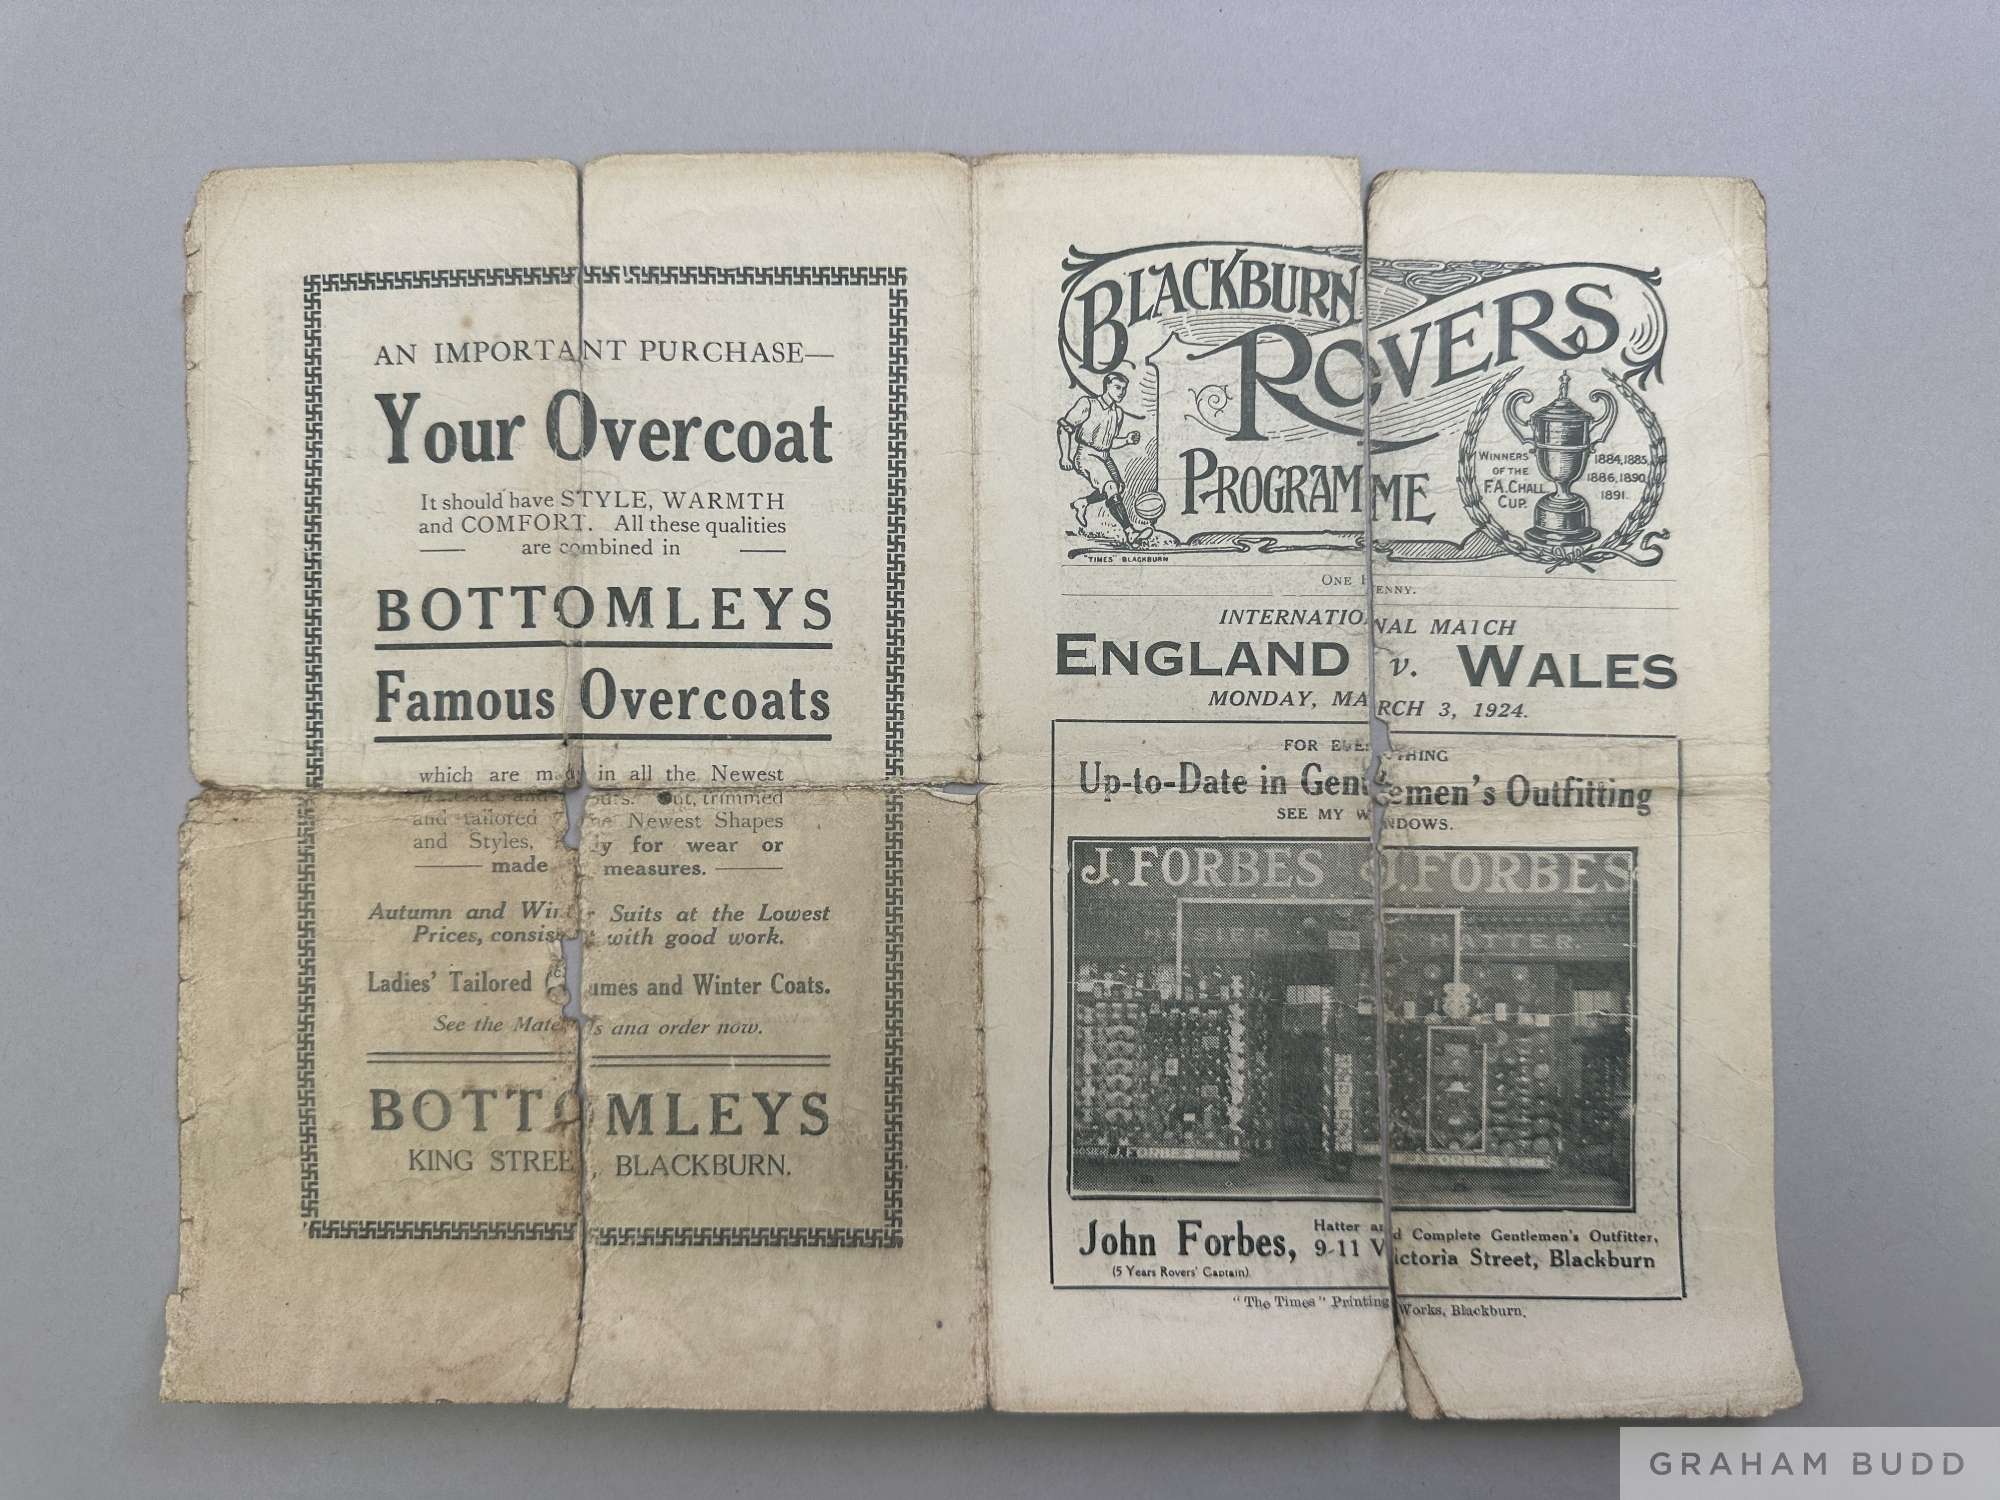 AN IMPORTANT PURCHASE—
Your Overcoat
It should have STYLE, WARMTH
and COMFORT. All these qualities
are combined in
BOTTOMLEYS
Famous Overcoats
which are made in all the Newest
and Cut, trimmed
and tailored Newest Shapes
and Styles, for wear or
made measures.
Autumn and Winter Suits at the Lowest
Prices, consist with good work.
Ladies' Tailored umes and Winter Coats.
See the Mate ls and order now.
BOTTOMLEYS
KING STREE, BLACKBURN.
BLACKBURN
ROVERS
PROGRAMME
WINNERS
OF THE
F.A. CHALL
CUP.
1884,1885,
1886,1890,
1891.
"TIMES" BLACKBURN
ONE PENNY.
INTERNATIONAL MATCH
ENGLAND v. WALES
MONDAY, MARCH 3, 1924.
FOR EVERYTHING
Up-to-Date in Gentlemen's Outfitting
SEE MY WINDOWS.
J. FORBES J. FORBES
HATTER.
HOSIER J. FORBES
J. FORBES
John Forbes,
(5 Years Rovers' Captain)
Hatter and Complete Gentlemen's Outfitter,
9-11 Victoria Street, Blackburn
"The Times" Printing Works, Blackburn.
GRAHAM BUDD